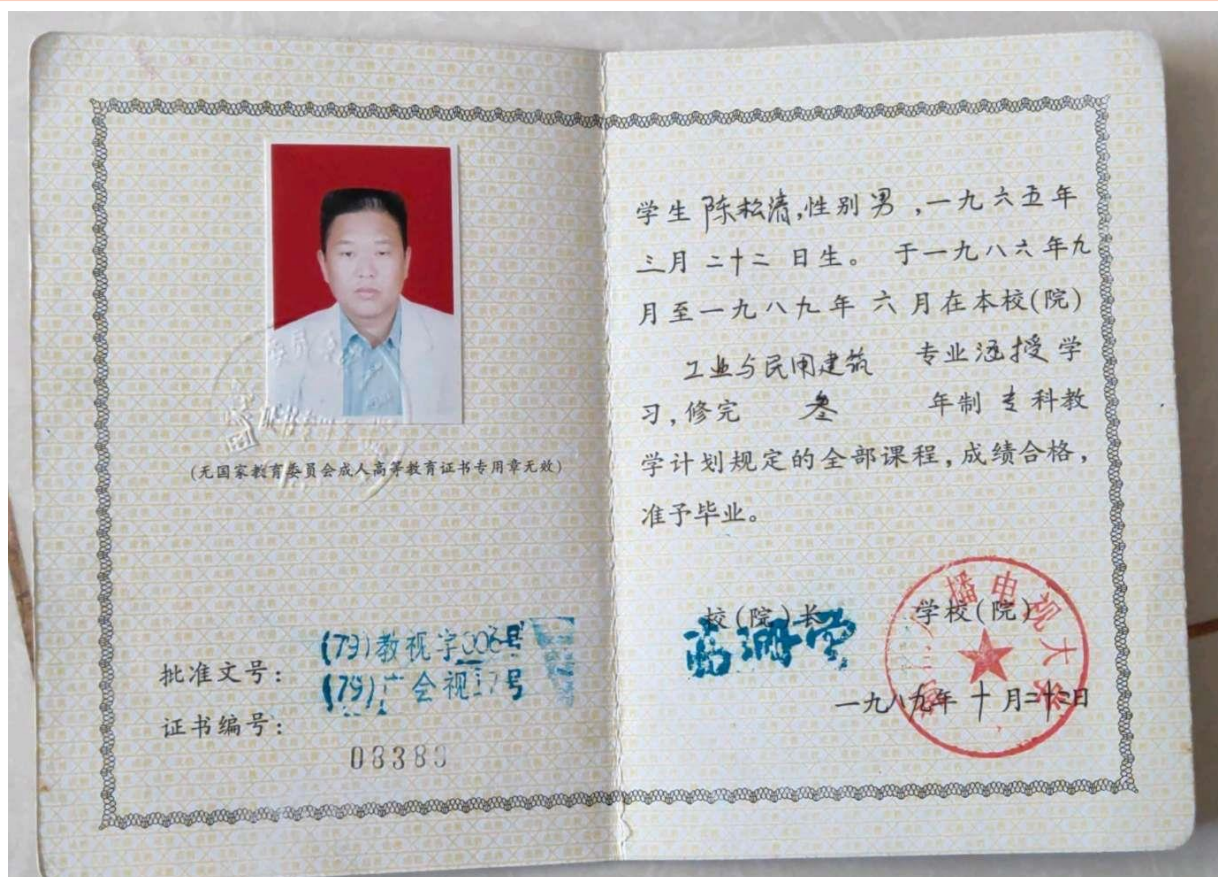 (无国家教育委员会成人高等教育证书专用章无效)
批准文号:
(79)教视字006号
(79)广会视17号
证书编号:
学生 陈松清,性别 男 ,一九六五年
三月 二十二 日生。 于一九八六年九
月至一九八九年 六 月在本校(院)
工业与民用建筑 专业函授学
习,修完 叁 年制 专科教
学计划规定的全部课程,成绩合格,
准予毕业。
校(院)长 学校(院)
播电视大学
一九八九年 十 月二十二日